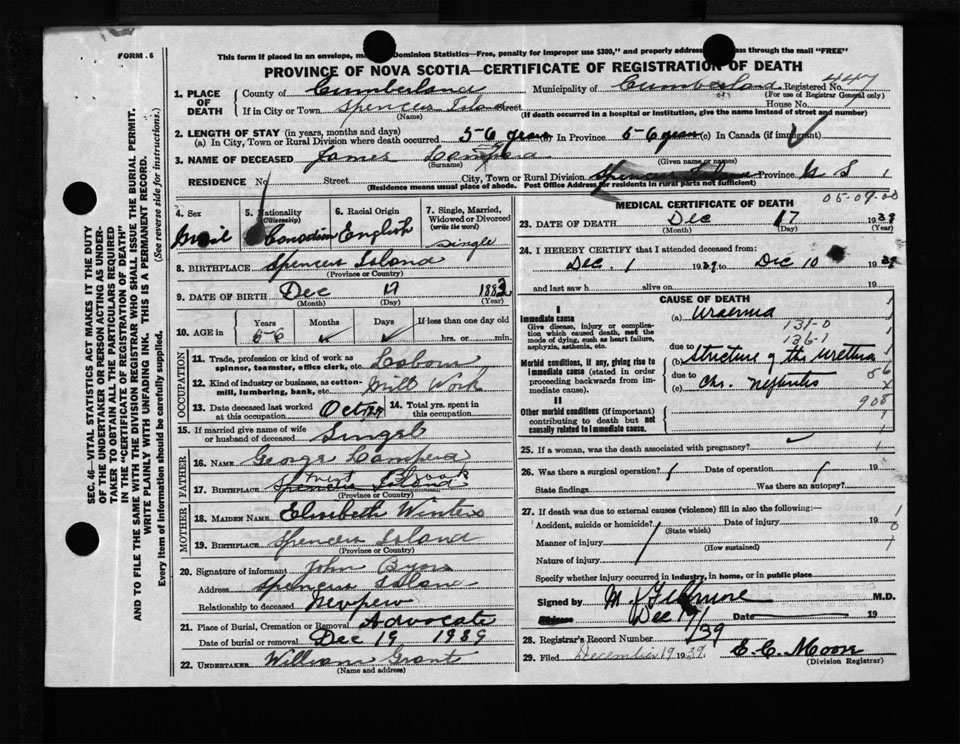 FORM. 6
This form if placed in an envelope, Dominion Statistics—Free, penalty for improper use $300," and properly address pass through the mail "FREE"
PROVINCE OF NOVA SCOTIA—CERTIFICATE OF REGISTRATION OF DEATH
1. PLACE OF DEATH County of Cumberland Municipality of Cumberland Registered No. 447
(For use of Registrar General only)
If in City or Town Spencers Island Street House No.
(Name) (If death occurred in a hospital or institution, give the name instead of street and number)
2. LENGTH OF STAY (in years, months and days)
(a) In City, Town or Rural Division where death occurred 56 years (b) In Province 56 years (c) In Canada (if immigrant)
3. NAME OF DECEASED James
(Surname) (Given name or names)
RESIDENCE No. Street City, Town or Rural Division Spencers Island Province N S 1
(Residence means usual place of abode. Post Office Address for residents in rural parts not sufficient)
4. Sex
5. Nationality (Citizenship) Canadian
6. Racial Origin English
7. Single, Married, Widowed or Divorced (write the word) Single
8. BIRTHPLACE Spencers Island
(Province or Country)
9. DATE OF BIRTH Dec 17 1883
(Month) (Day) (Year)
10. AGE in Years Months Days If less than one day old
56 hrs. or min.
OCCUPATION
11. Trade, profession or kind of work as spinner, teamster, office clerk, etc.
12. Kind of industry or business, as cotton-mill, lumbering, bank, etc. Mill Work
13. Date deceased last worked at this occupation Oct
14. Total yrs. spent in this occupation
15. If married give name of wife or husband of deceased Singel
FATHER
16. NAME George
17. BIRTHPLACE
(Province or Country)
MOTHER
18. MAIDEN NAME Elisibeth Winters
19. BIRTHPLACE Spencers Island
(Province or Country)
20. Signature of informant John
Address Spencers Island
Relationship to deceased Nevpew
21. Place of Burial, Cremation or Removal Advocate
Date of burial or removal Dec 19 1939
22. UNDERTAKER William Grant
(Name and address)
MEDICAL CERTIFICATE OF DEATH
23. DATE OF DEATH Dec 17 1939
(Month) (Day) (Year)
24. I HEREBY CERTIFY that I attended deceased from:
Dec. 1 1939 to Dec 10 1939
and last saw h alive on 19
CAUSE OF DEATH
I
Immediate cause
Give disease, injury or complication which caused death, not the mode of dying, such as heart failure, asphyxia, asthenia, etc.
(a) Uraemia
131-0
136-1
due to
Morbid conditions, if any, giving rise to immediate cause (stated in order proceeding backwards from immediate cause).
(b) Stricture of the Urethra
due to
(c) Chr. Nephritis
908
II
Other morbid conditions (if important) contributing to death but not causally related to immediate cause.
25. If a woman, was the death associated with pregnancy?
26. Was there a surgical operation? Date of operation 19
State findings Was there an autopsy?
27. If death was due to external causes (violence) fill in also the following:
Accident, suicide or homicide? Date of injury 19
(State which)
Manner of injury
(How sustained)
Nature of injury
Specify whether injury occurred in industry, in home, or in public place
Signed by M.D.
Address Dec 19/39 Date 19
28. Registrar's Record Number
29. Filed December 19 1939 C. C. Moore
(Division Registrar)
SEC. 46—VITAL STATISTICS ACT MAKES IT THE DUTY
OF THE UNDERTAKER OR PERSON ACTING AS UNDER-
TAKER TO OBTAIN ALL THE PARTICULARS REQUIRED
IN THE "CERTIFICATE OF REGISTRATION OF DEATH"
AND TO FILE THE SAME WITH THE DIVISION REGISTRAR WHO SHALL ISSUE THE BURIAL PERMIT.
WRITE PLAINLY WITH UNFADING INK. THIS IS A PERMANENT RECORD.
Every item of information should be carefully supplied.
(See reverse side for instructions.)